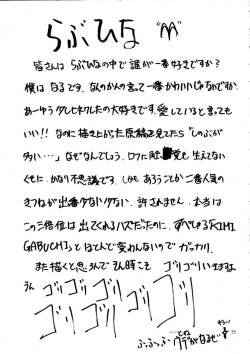 らぶひな "AA"
皆さんは らぶひなの中で 誰が一番好きですか？
僕は なるです。なんのかんの言って一番かわいいじゃないですか。
あーゆう タレヒネクレたの大好きです。愛していると言っても
いい!! なのに 描き上がった原稿を見てたら "しのぶが
多い…" なぜなんでしょう。ロクに 覚も 生えてない
くせに。かなり不思議です。しかも あろうことか 二番人気の
きつねが 出番少ない少ない。許さません。本当は
この三倍位は 出てくれるハズだったのに、すべしる『KIMI
GABUCHI』と ほとんど変わんないので ガッカリ。
また描くと思うんで そん時こそ ゴリゴリいきますよ
うん
ゴリ ゴリ ゴリ ゴリ ゴリ
ゴリ
ぶっふっふ…
ウデがなるぜ